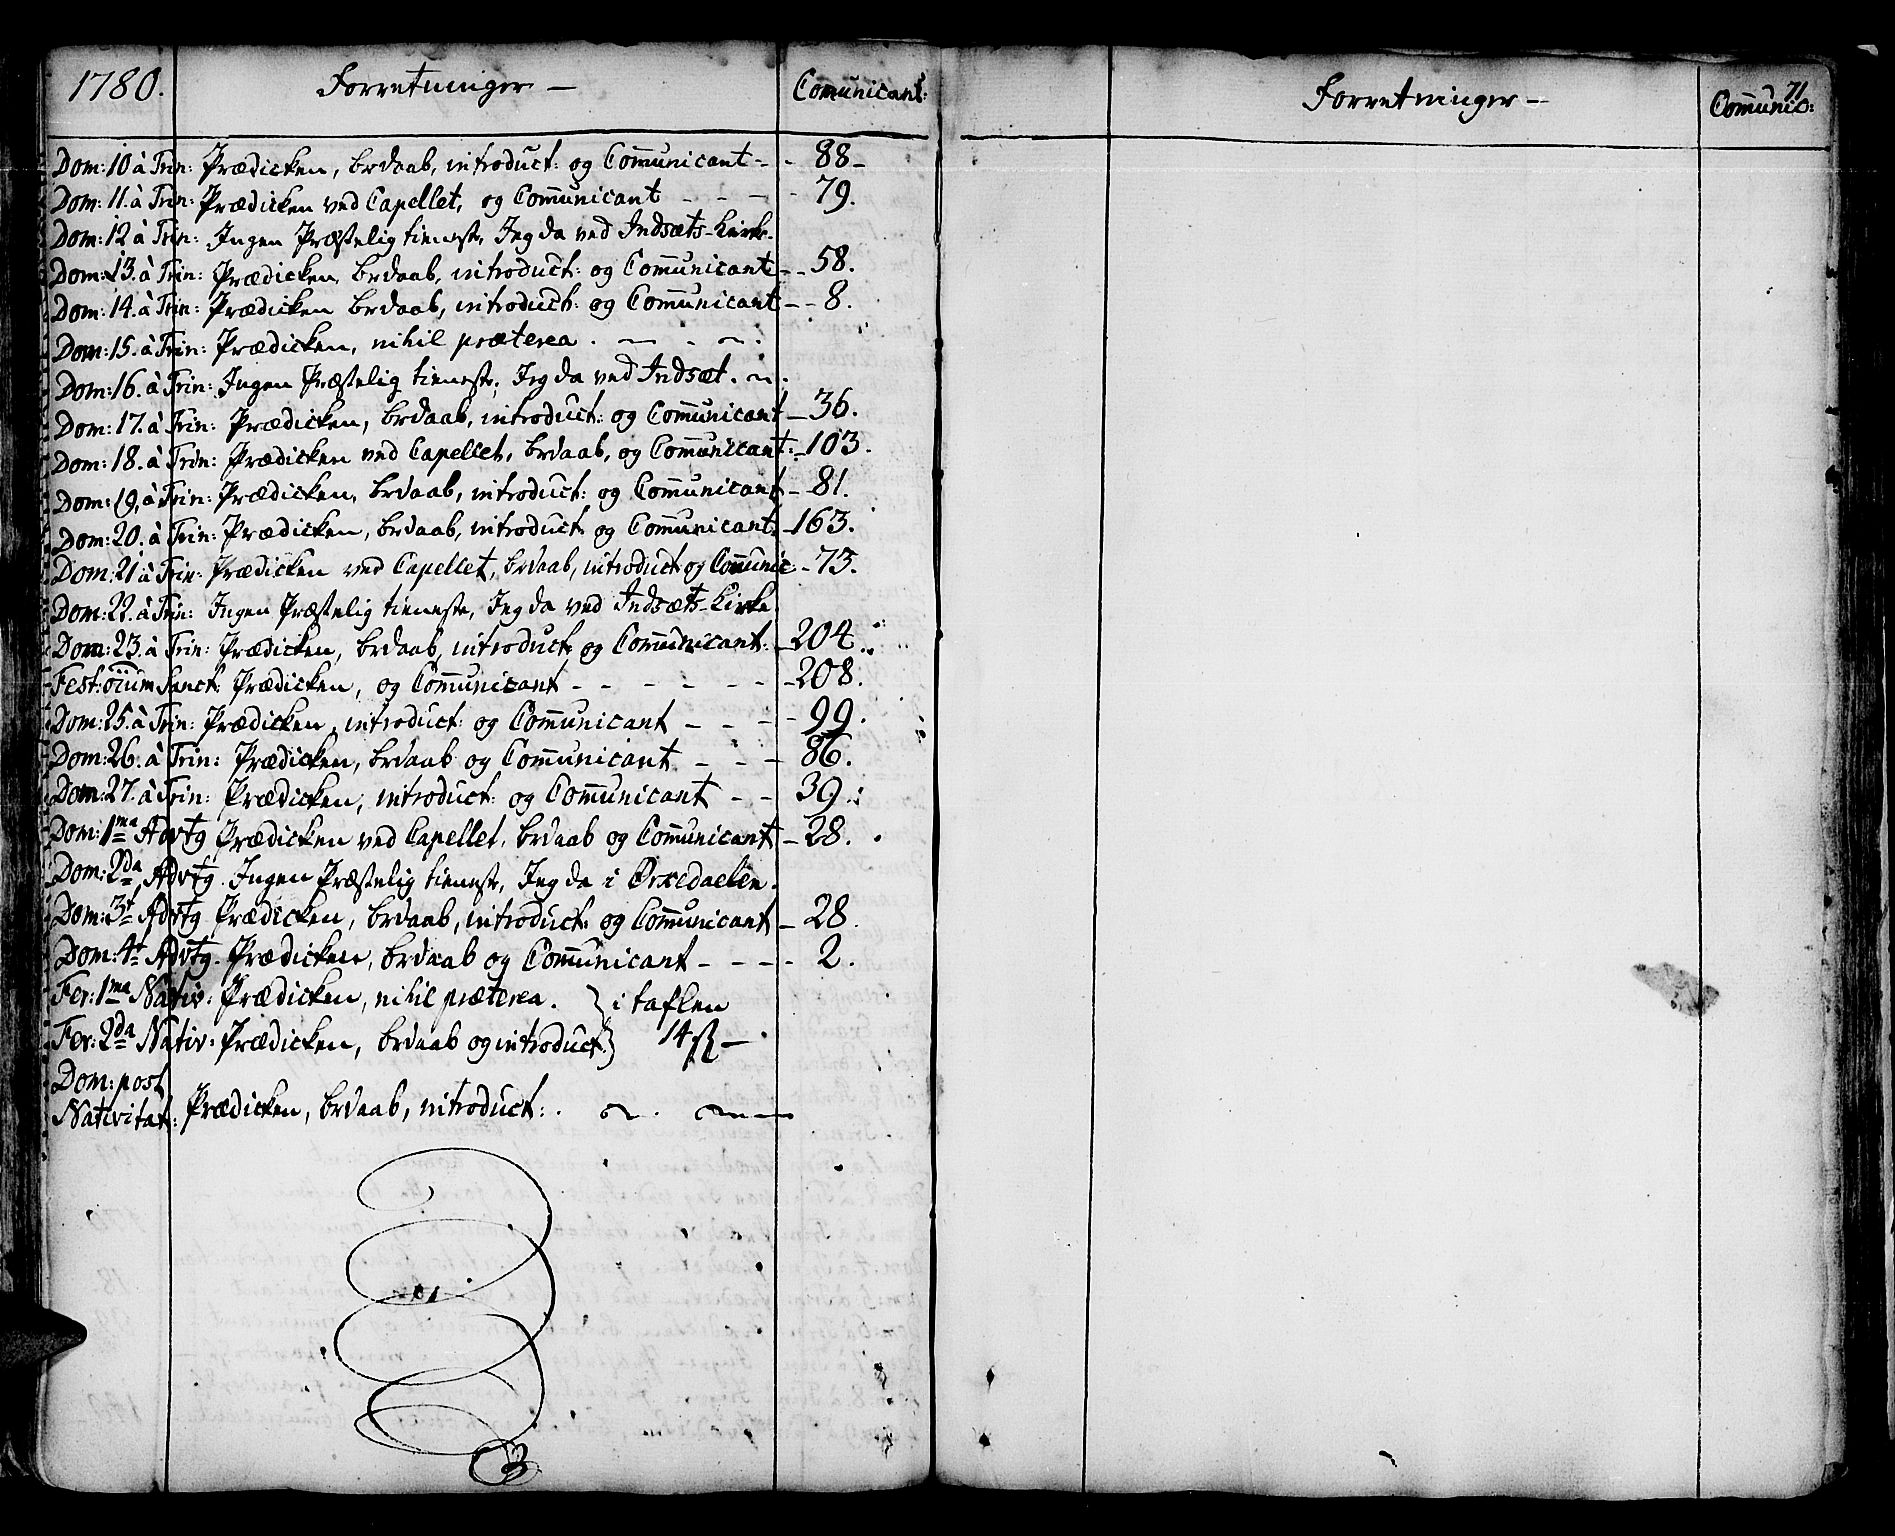 1780. Forretninger — Comunicant:
Dom: 10 à Trin: Prædicken, brdaab, introduct: og Com̄unicant - - 88 -
Dom: 11. à Trin: Prædicken ved Capellet, og Com̄unicant - - - - 79.
Dom: 12 à Trin: Ingen Præstelig tieneste, Jeg da ved Indsæts-Kirke.
Dom: 13. à Trin: Prædicken, brdaab, introduct: og Com̄unicant - - 58.
Dom: 14. à Trin: Prædicken brdaab, introduct: og Com̄unicant - - 8.
Dom: 15. à Trin: Prædicken, nihil præterea .
Dom: 16. à Trin: Ingen Præstelig tieneste, Jeg da ved Indsæt.
Dom: 17. à Trin: Prædicken, brdaab, introduct: og Com̄unicant - 36.
Dom: 18. à Trin: Prædicken ved Capellet, brdaab, og Com̄unicant: - 103.
Dom: 19, à Trin: Prædicken, brdaab, introduct: og Com̄unicant - - 81.
Dom: 20. à Trin: Prædicken, brdaab, introduct: og Com̄unicant. - 163.
Dom: 21 à Trin: Prædicken ved Capellet, brdaab, introduct: og Com̄unic: - 73.
Dom: 22. à Trin: Ingen Præstelig tieneste, Jeg da ved Indsæts-Kirke.
Dom: 23. à Trin: Prædicken, brdaab, introduct: og Com̄unicant: - 204.
Fest: oīum Sanct: Prædicken, og Com̄unicant - - - - - - - 208.
Dom: 25. à Trin: Prædicken, introduct: og Com̄unicant - - - - 99.
Dom: 26. à Trin: Prædicken, brdaab og Com̄unicant - - - 86.
Dom: 27. à Trin: Prædicken, introduct: og Com̄unicant - - 39.
Dom: 1ma Advtg Prædicken ved Capellet, brdaab og Com̄unicant - 28.
Dom: 2da Advtg. Ingen Præstelig tieneste, Jeg da i Ørxedaelen.
Dom: 3t Advtg Prædicken, brdaab, introduct: og Com̄unicant - 28.
Dom: 4t Advtg. Prædicken, brdaab og Com̄unicant - - - - 2.
Fer: 1ma Nativ: Prædicken, nihil præterea. } i taflen
Fer: 2da Nativ: Prædicken, brdaab og introduct: } 14 ß —
Dom: post
Nativitat: Prædicken, brdaab, introduct: .
71
Forretninger — Com̄unic: